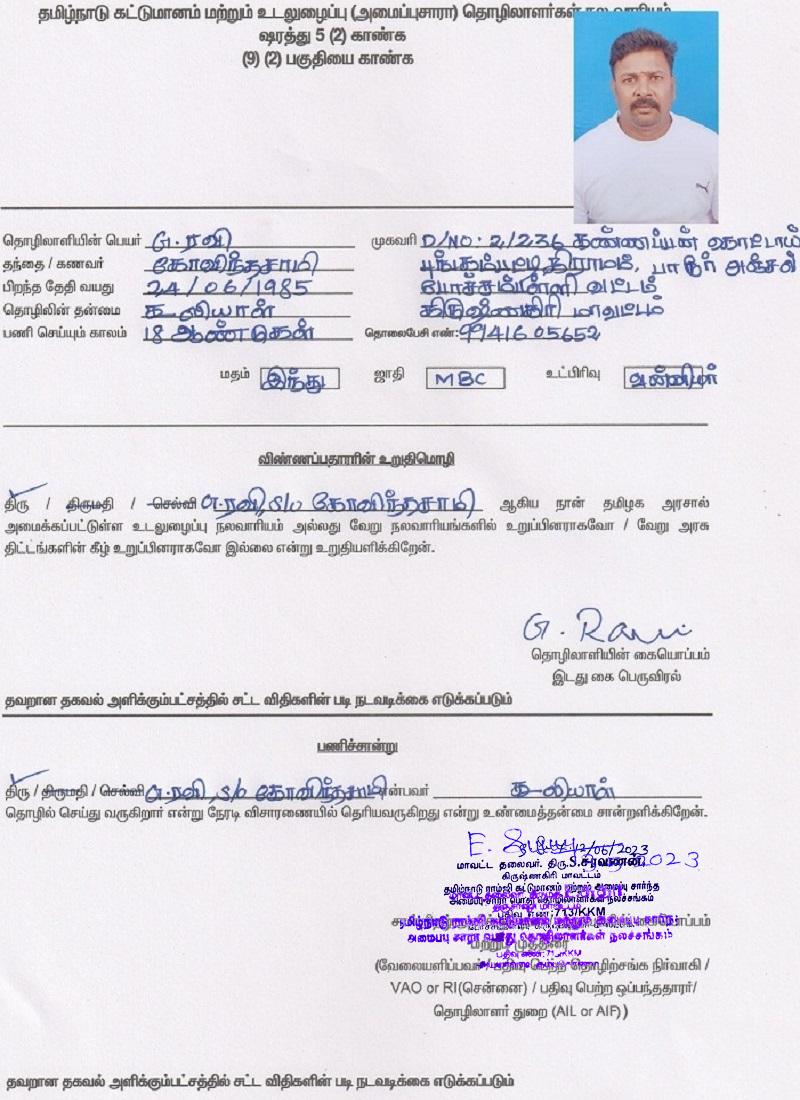 தமிழ்நாடு கட்டுமானம் மற்றும் உடலுழைப்பு (அமைப்புசாரா) தொழிலாளர்கள் நல வாரியம்
ஷரத்து 5 (2) காண்க
(9) (2) பகுதியை காண்க
தொழிலாளியின் பெயர் G. ரவி
முகவரி D/NO: 2/236 கண்ணப்பன் கொட்டாய்
தந்தை / கணவர் கோவிந்தசாமி
கிராமம், பாரூர் அஞ்சல்
பிறந்த தேதி வயது 24/06/1985
போச்சம்பள்ளி வட்டம்
தொழிலின் தன்மை
கிருஷ்ணகிரி மாவட்டம்
பணி செய்யும் காலம் 18 ஆண்டுகள்
தொலைபேசி எண்: 9941605652
மதம் இந்து ஜாதி MBC உட்பிரிவு வன்னியர்
விண்ணப்பதாரரின் உறுதிமொழி
திரு / திருமதி / செல்வி G.ரவி, S/o கோவிந்தசாமி ஆகிய நான் தமிழக அரசால்
அமைக்கப்பட்டுள்ள உடலுழைப்பு நலவாரியம் அல்லது வேறு நலவாரியங்களில் உறுப்பினராகவோ / வேறு அரசு
திட்டங்களின் கீழ் உறுப்பினராகவோ இல்லை என்று உறுதியளிக்கிறேன்.
G. Ravi
தொழிலாளியின் கையொப்பம்
இடது கை பெருவிரல்
தவறான தகவல் அளிக்கும்பட்சத்தில் சட்ட விதிகளின் படி நடவடிக்கை எடுக்கப்படும்
பணிச்சான்று
திரு / திருமதி / செல்வி G.ரவி, S/o கோவிந்தசாமி என்பவர்
தொழில் செய்து வருகிறார் என்று நேரடி விசாரணையில் தெரியவருகிறது என்று உண்மைத்தன்மை சான்றளிக்கிறேன்.
12/06/2023
மாவட்ட தலைவர். திரு.S.சரவணன்
கிருஷ்ணகிரி மாவட்டம்
தமிழ்நாடு ராம்ஜி கட்டுமானம் மற்றும் அமைப்பு சார்ந்த
அமைப்பு சாரா பொது தொழிலாளர்கள் நலச்சங்கம்
பதிவு எண்:713/KKM
அமைப்பு சாரா பொது தொழிலாளர்கள் நலச்சங்கம்
மற்றும் முத்திரை
(வேலையளிப்பவர் / பதிவு பெற்ற தொழிற்சங்க நிர்வாகி /
VAO or RI(சென்னை) / பதிவு பெற்ற ஒப்பந்ததாரர்/
தொழிலாளர் துறை (AIL or AIF))
தவறான தகவல் அளிக்கும்பட்சத்தில் சட்ட விதிகளின் படி நடவடிக்கை எடுக்கப்படும்